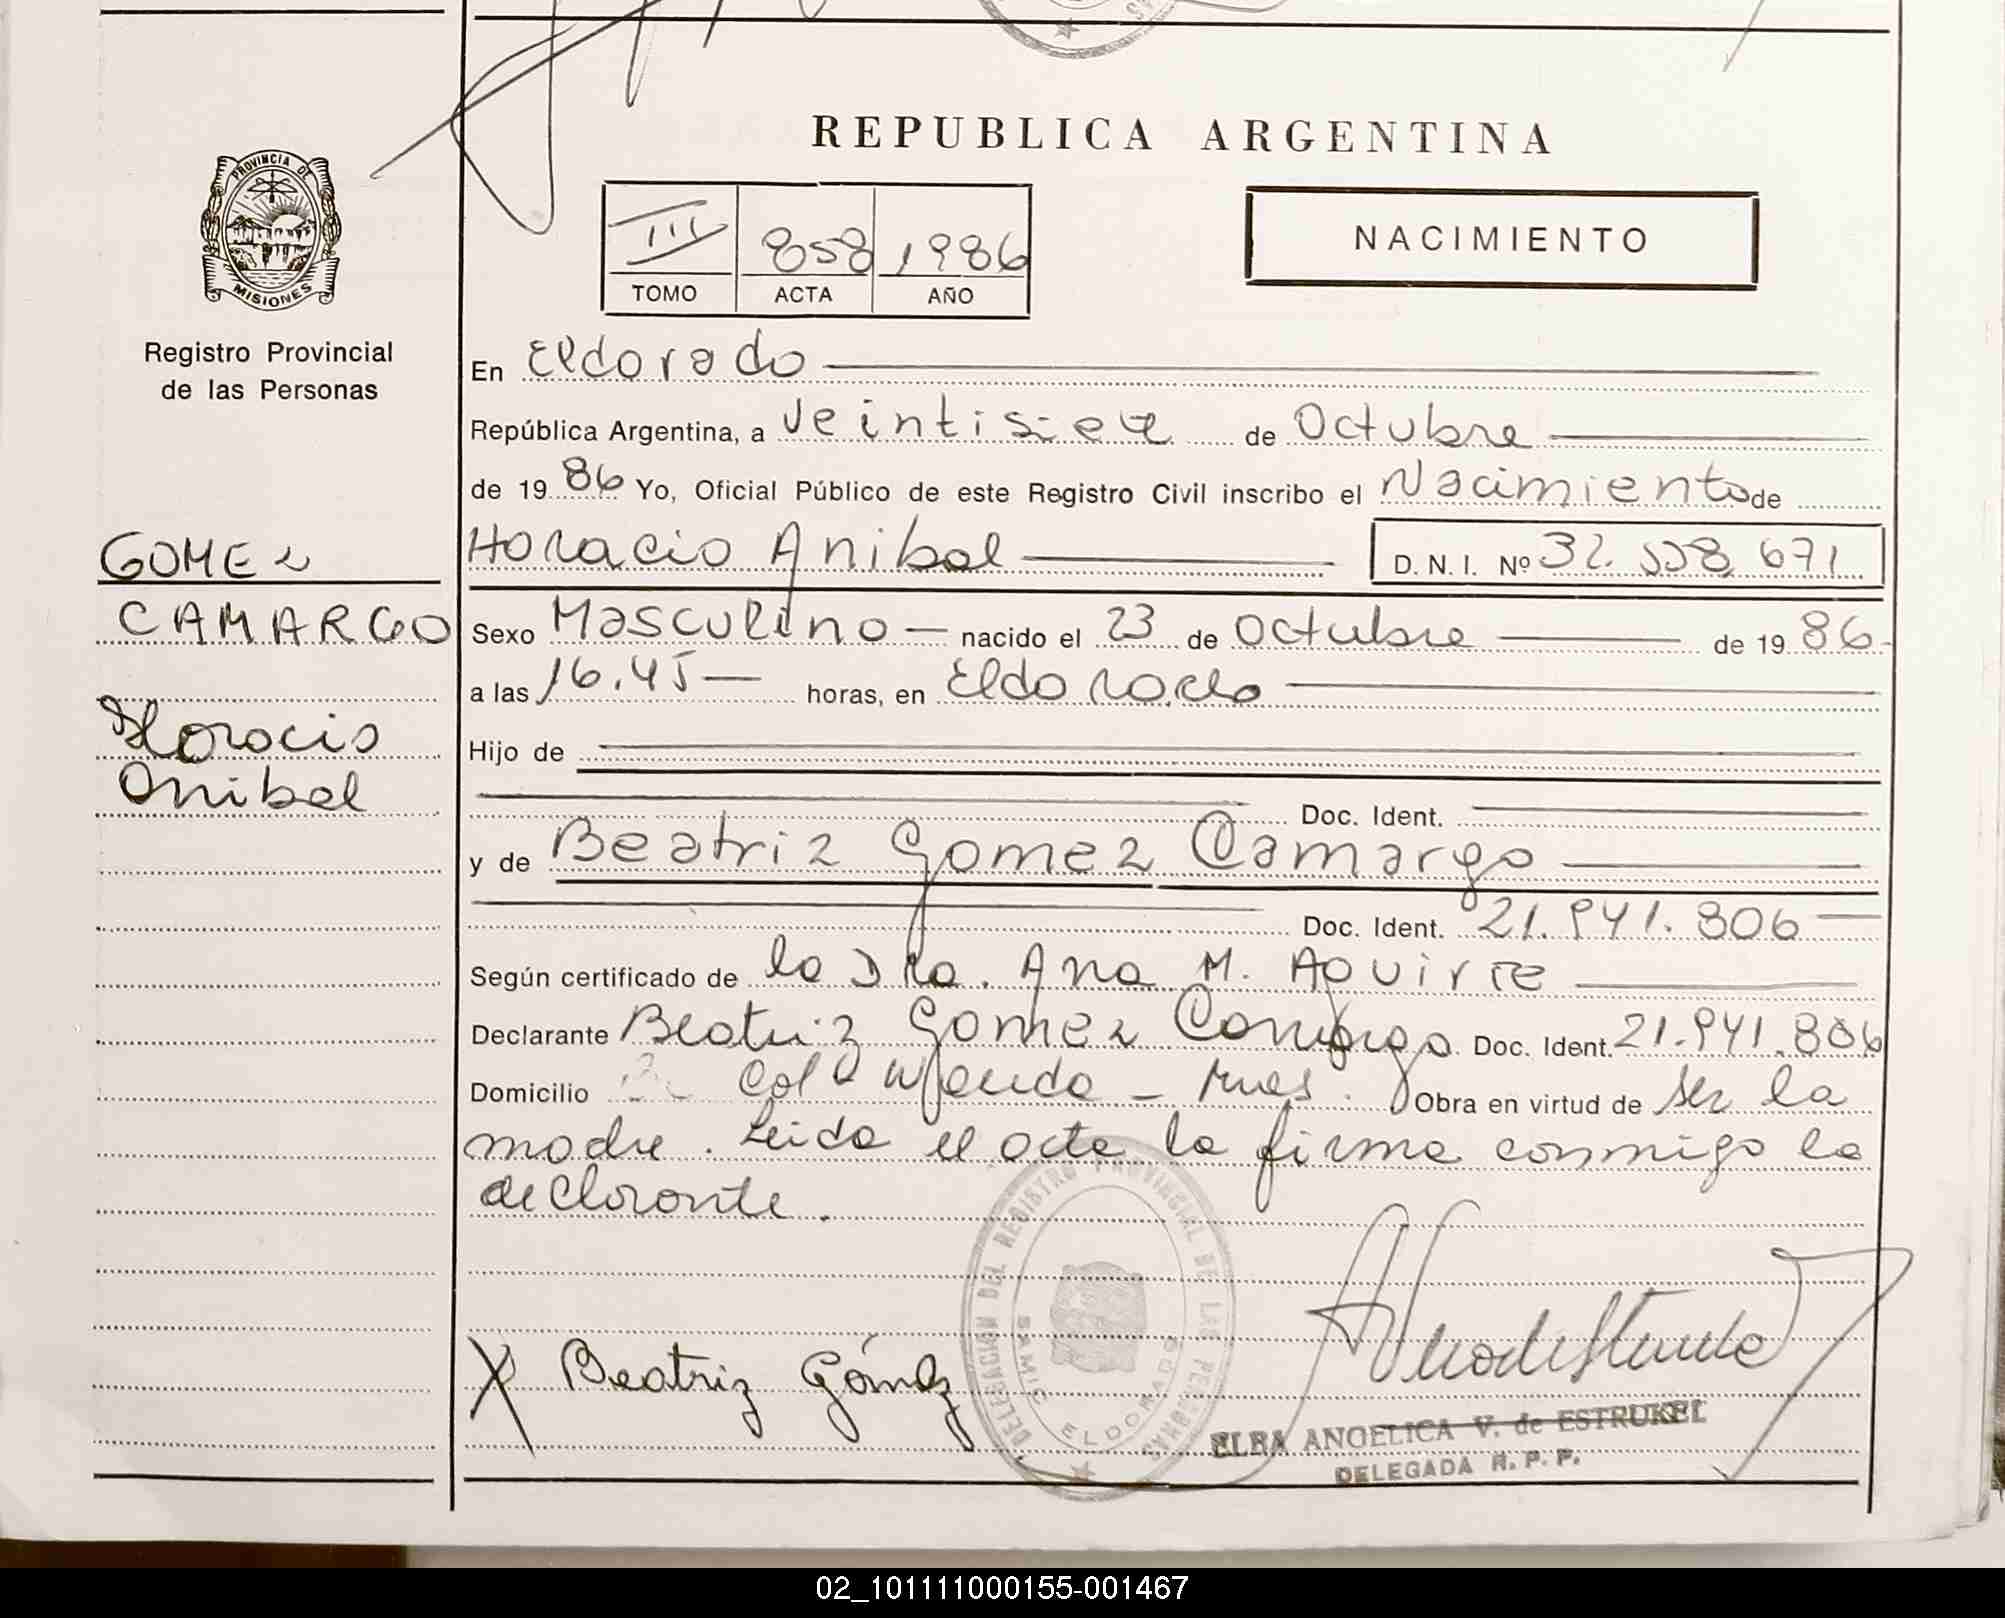 REPUBLICA ARGENTINA
PROVINCIA DE
MISIONES
Registro Provincial
de las Personas
III 858 1986
TOMO ACTA AÑO
NACIMIENTO
En Eldorado
República Argentina, a veintisiete de Octubre
de 1986 Yo, Oficial Público de este Registro Civil inscribo el Nacimiento de
GOMEZ
CAMARGO
Horacio
Anibal
Horacio Anibal D. N. I. Nº 32.558.671
Sexo Masculino nacido el 23 de Octubre de 1986
a las 16.45 horas, en Eldorado
Hijo de
Doc. Ident.
y de Beatriz Gomez Camargo
Doc. Ident. 21.941.806
Según certificado de la Dra. Ana M. Aguirre
Declarante Beatriz Gomez Camargo Doc. Ident. 21.941.806
Domicilio Colª Wanda - Mnes. Obra en virtud de ser la
madre. Leida el acta la firma conmigo la
declarante.
DELEGACION DEL REGISTRO PROVINCIAL DE LAS PERSONAS
SAMIC ELDORADO
X Beatriz Gómez
ELBA ANGELICA V. de ESTRUKEL
DELEGADA R. P. P.
02_101111000155-001467